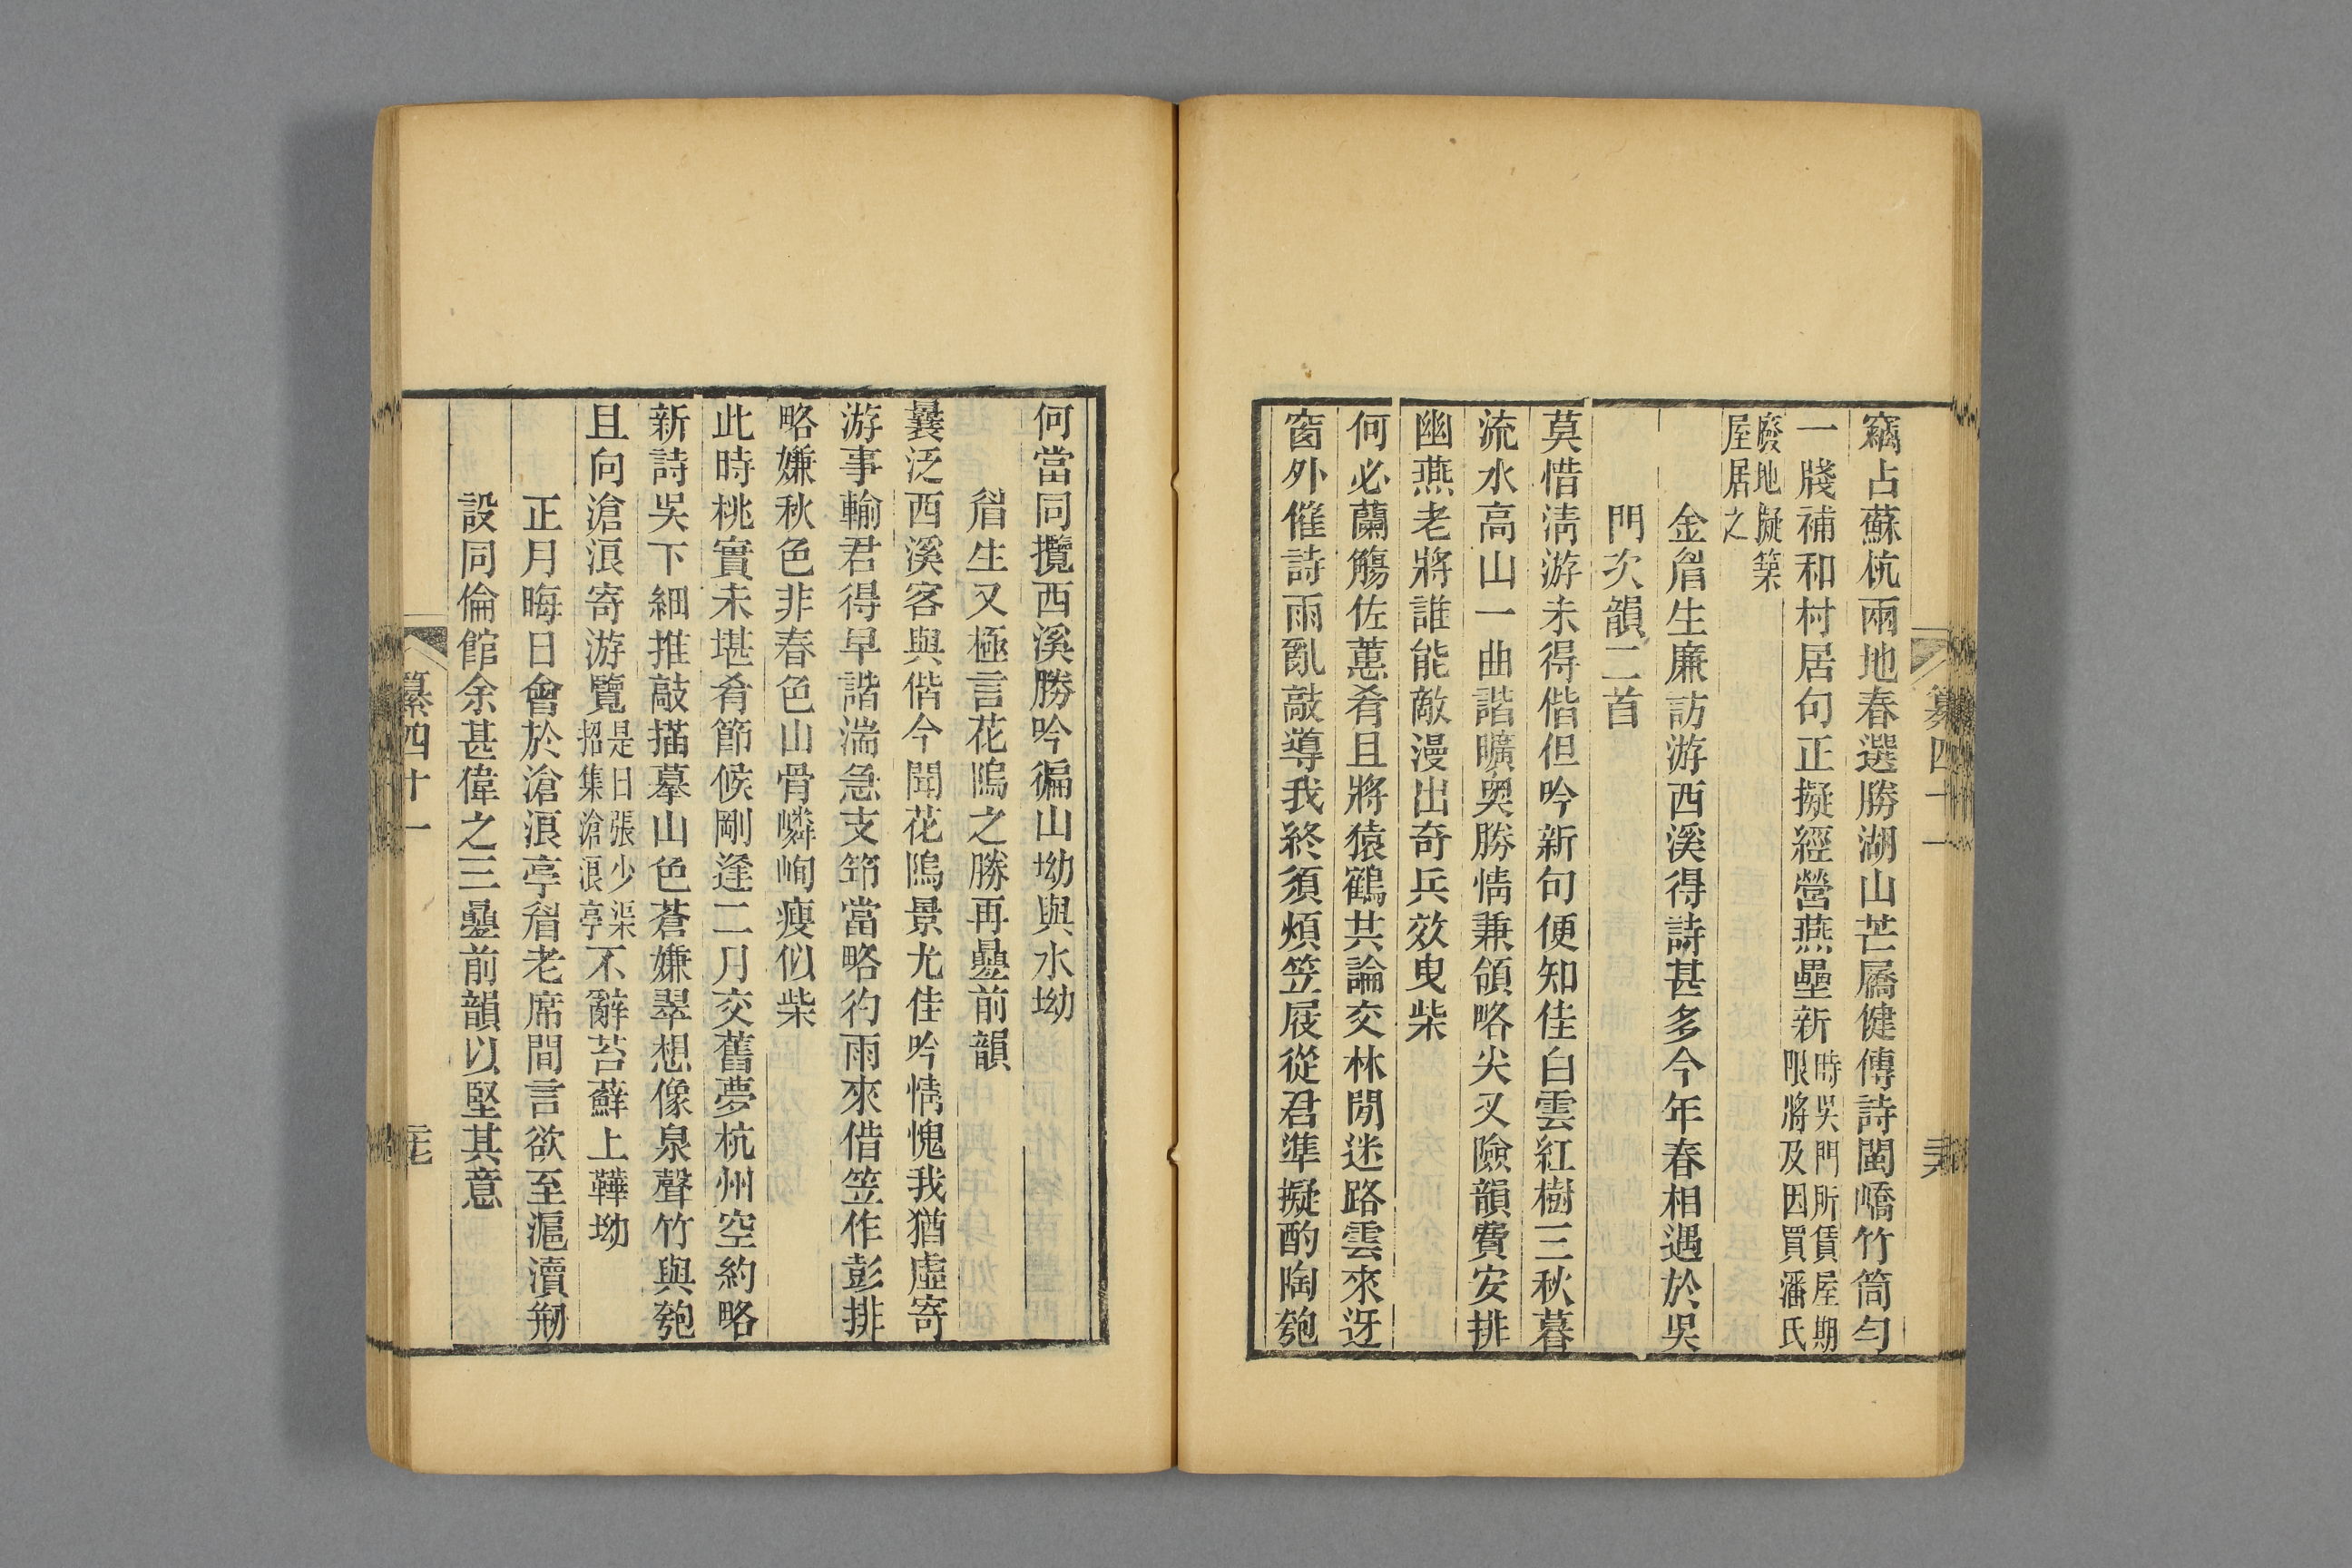 竊占蘇杭兩地春選勝湖山芒屩健傳詩閩嶠竹筒勻
一牋補和村居句正擬經營燕壘新時吳門所賃屋期限將及因買潘氏
廢地擬築屋居之
金眉生廉訪游西溪得詩甚多今年春相遇於吳
門次韻二首
莫惜淸游未得偕但吟新句便知佳白雲紅樹三秋暮
流水高山一曲諧曠奧勝情兼領略尖叉險韻費安排
幽燕老將誰能敵漫出奇兵效曳柴
何必蘭觴佐蕙肴且將猿鶴共論交林閒迷路雲來迓
窗外催詩雨亂敲導我終須煩笠屐從君準擬酌陶匏
纂四十一
何當同攬西溪勝吟徧山坳與水坳
眉生又極言花隖之勝再疊前韻
曩泛西溪客與偕今聞花隖景尤佳吟情愧我猶虛寄
游事輸君得早諧湍急支筇當略彴雨來借笠作彭排
略嫌秋色非春色山骨嶙峋瘦似柴
此時桃實未堪肴節候剛逢二月交舊夢杭州空約略
新詩吳下細推敲描摹山色蒼嫌翠想像泉聲竹與匏
且向滄浪寄游覽是日張少渠招集滄浪亭不辭苔蘚上鞾坳
正月晦日會於滄浪亭眉老席間言欲至滬瀆剏
設同倫館余甚偉之三疊前韻以堅其意
纂四十一